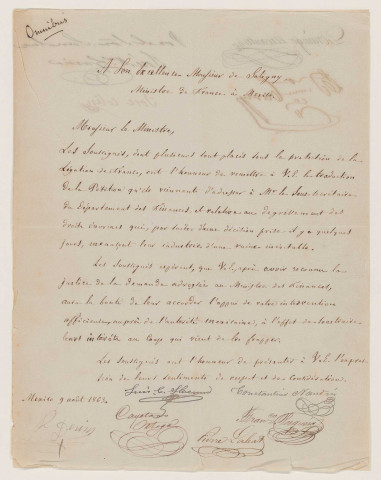 Omnibus
A Son Excellence Monsieur de Saligny
Ministre de France à Mexico
Monsieur le Ministre,
Les Soussignés, dont plusieurs sont placés sous la protection de la
Légation de France, ont l'honneur de remettre à V.E. la traduction
de la Pétition qu'ils viennent d'adresser à Mr. le Sous-Secrétaire
du département des Finances, et relative au dégrèvement des
droits énormes qui, par suite d'une décision prise il y a quelques
jours, menaçent leur industrie d'une ruine inévitable.
Les Soussignés espèrent, que V.E., après avoir reconnu la
justice de la demande adressée au Ministre des Finances,
aura la bonté de leur accorder l'appui de votre intervention
officieuse auprès de l'autorité mexicaine, à l'effet de soustraire
leurs intérêts au coup qui vient de les frapper.
Les Soussignés ont l'honneur de présenter à V.E. l'expres-
sion de leurs sentiments de respect et de considération.
Mexico 9 août 1862.